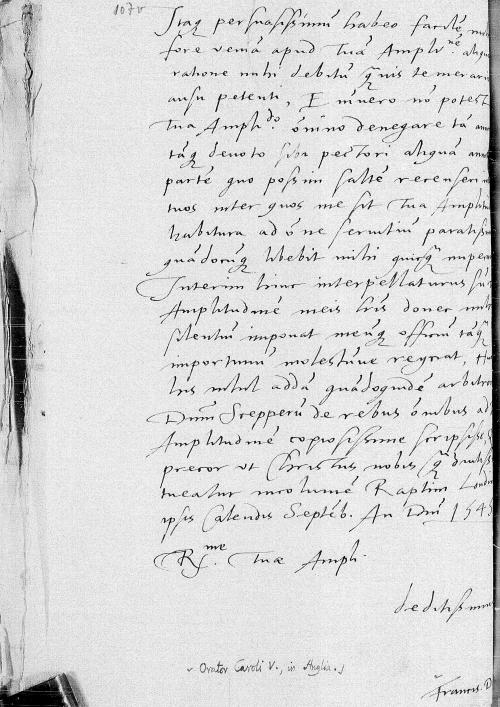 107v
Itaq persuasissimū habeo facilē
fore veniā apud Tuā Ampli.nē aliqua
ratione mihi debitū quis temerario
ausu petenti, Et in vero nō potest
Tua Ampli.do ōnino denegare tā
tāq devoto sibi pectori aliquā
partē quo possim saltē recenseri
tuos inter quos me sit Tua Amplitu
habitura ad ōne servitiū paratissi
quādocūq libebit mihi quicq impera
Interim hinc interpellaturus su
Amplitudinē meis lris donec mihi
silentiū imponat meūq officiū tāq
importunū molestūve reijciat,
his nihil addā quādoquidē arbitro
Dnum Scepperū de rebus ōnibus ad
Amplitudinē copiosissime scripsisse
precor ut Christus nobis q diutiss
tueatur incolumē Raptim Londi
ipsis Calendis Septēb. An Dni 1545
R.me Tuæ Ampli.
deditissimus
Orator Caroli V., in Anglia.
Francis. D